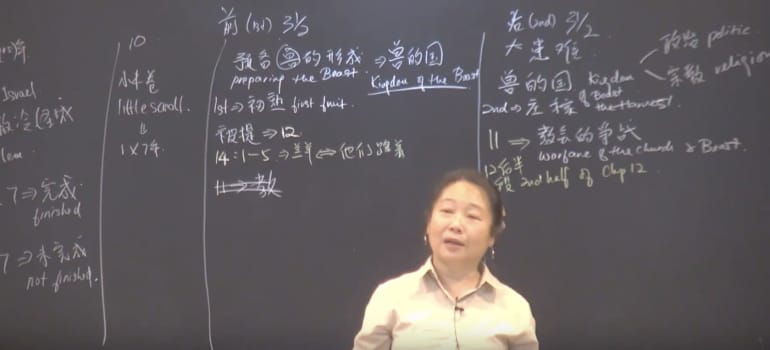 Israel
7 ⇒ 完成
finished
7 ⇒ 未完成
not finished.
10
小书卷
little scroll.
1×7年
前 (1st) 3½
预备兽的形成 ⇒ 兽的国
preparing the Beast. Kingdom of the Beast
1st ⇒ 初熟 first fruit.
被提 ⇒ 12
14:1-5 ⇒ 羔羊 ⇔ 他们跟着
后 (2nd) 3½
大患难
兽的国 Kingdom of Beast
政治 politic
宗教 religion
2nd ⇒ 庄稼 the Harvest.
11 ⇒ 教会的争战
warfare of the church & Beast.
12后半段 2nd half of Chp 12.